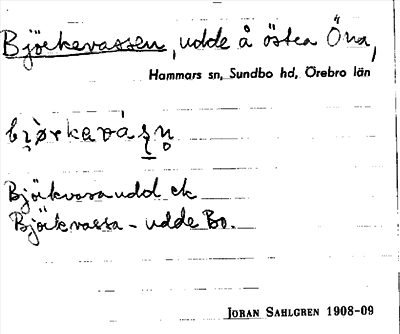 Björkevassen, udde å östra Öna,
Hammars sn, Sundbo hd, Örebro län
Björkvasaudd ek
Björkvassa-udde Bo.
JORAN SAHLGREN 1908-09